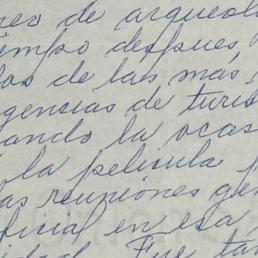 seo de arqueol
iempo despues,
los de las más
gencias de turis
ando la ocas
la pelicula p
as reuniones gen
ficial en esa
idad. Fue tan